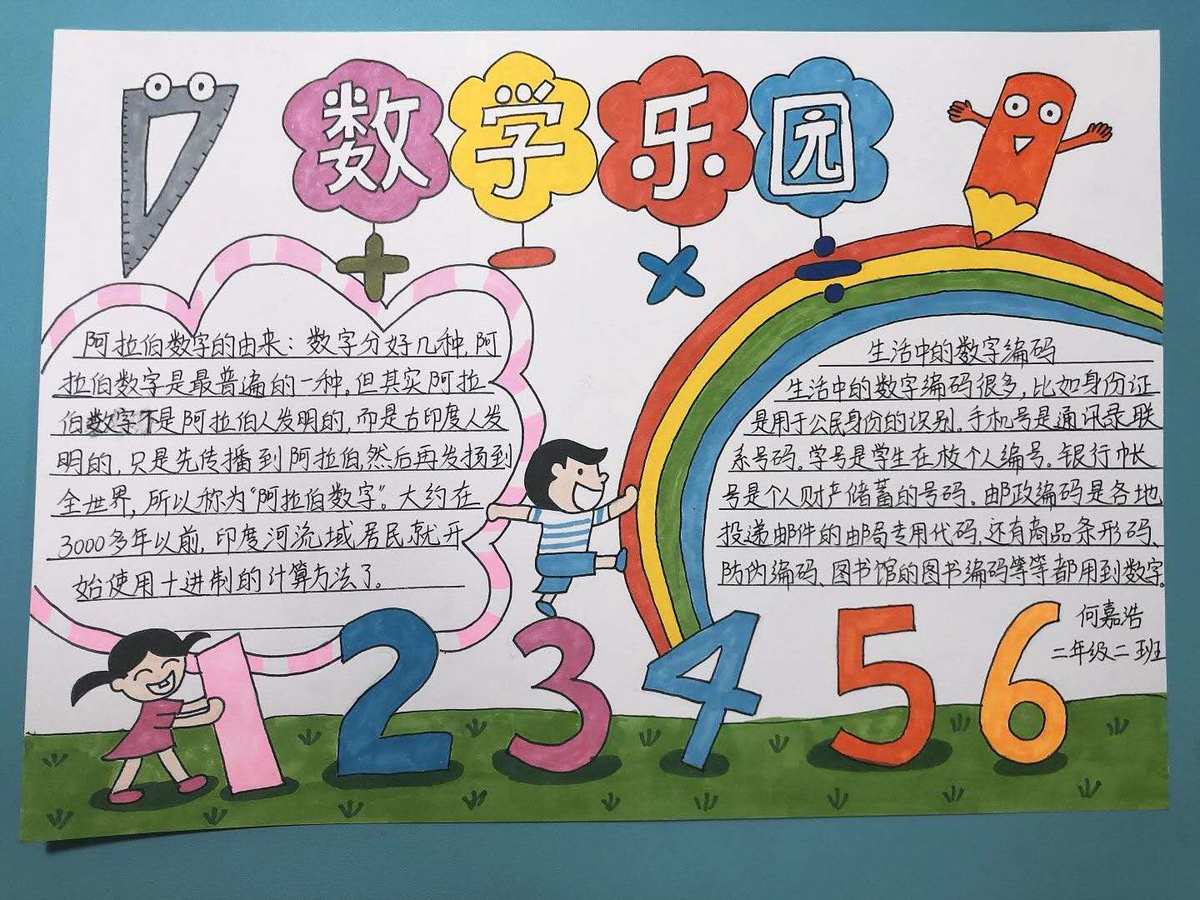 数学乐园
+ − × ÷
阿拉伯数字的由来：数字分好几种，阿
拉伯数字是最普遍的一种。但其实阿拉
伯数字不是阿拉伯人发明的，而是古印度人发
明的，只是先传播到阿拉伯，然后再发扬到
全世界，所以称为“阿拉伯数字”。大约在
3000多年以前，印度河流域居民就开
始使用十进制的计算方法了。
生活中的数字编码
生活中的数字编码很多，比如身份证
是用于公民身份的识别。手机号是通讯录联
系号码。学号是学生在校个人编号。银行帐
号是个人财产储蓄的号码。邮政编码是各地
投递邮件的邮局专用代码，还有商品条形码、
防伪编码、图书馆的图书编码等等都用到数字。
何嘉浩
二年级二班
1 2 3 4 5 6